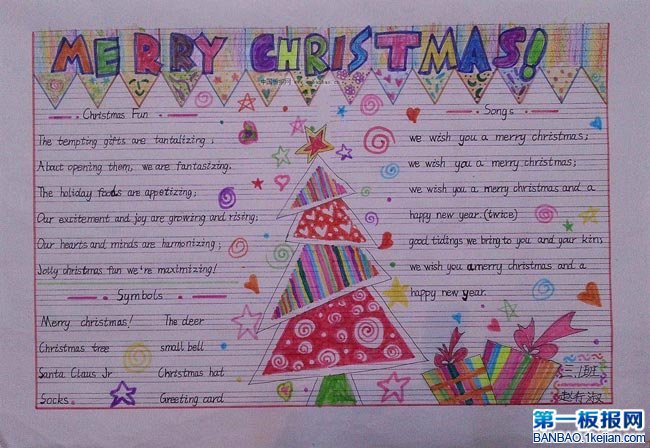 MERRY CHRISTMAS!
Christmas Fun
The tempting gifts are tantalizing;
About opening them, we are fantasizing.
The holiday foods are appetizing;
Our excitement and joy are growing and rising;
Our hearts and minds are harmonizing;
Jolly christmas fun we're maximizing!
Symbols
Merry christmas! The deer
Christmas tree small bell
Santa Claus Jr Christmas hat
Socks Greeting card
Songs
we wish you a merry christmas;
we wish you a merry christmas;
we wish you a merry christmas and a
happy new year.(twice)
good tidings we bring to you and your kins
we wish you a merry christmas and a
happy new year.
三.1班
第一板报网
BANBAO.1kejian.com